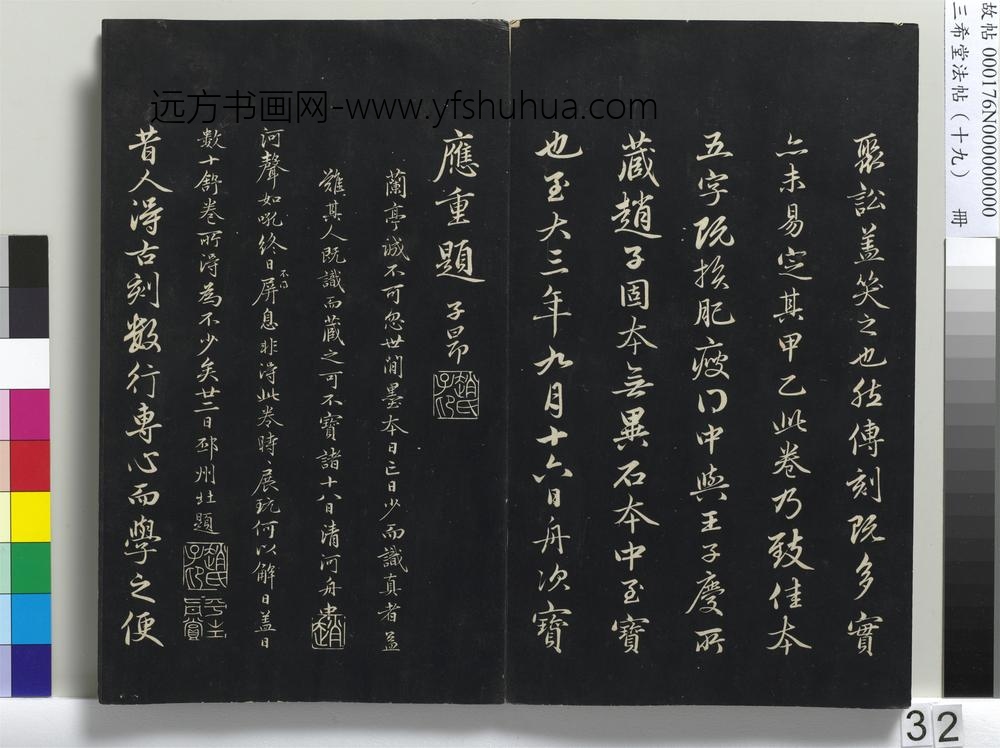 聚訟盖笑之也然傳刻既多實
亦未易定其甲乙此卷乃致佳本
五字既損肥瘦得中與王子慶所
藏趙子固本無異石本中至寶
也至大三年九月十六日舟次寶
應重題 子昂
趙氏子昂
蘭亭誠不可忽世間墨本日亡日少而識真者益
難其人既識而藏之可不寶諸十八日清河舟中
河聲如吼終日屏息非得此卷時時展玩何以解日盖日
不可
數十舒卷所得為不少矣廿二日邳州北題
趙氏子昂
昔人得古刻數行專心而學之便
远方书画网-www.yfshuhua.com
故帖 000176N000000000
三希堂法帖（十九） 冊
32